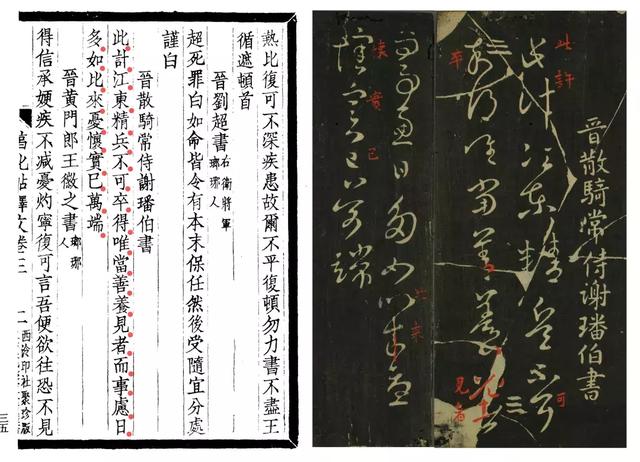 熱比復可不深疾患故爾不平復頓勿力書不盡王
循遮頓首
晉劉超書 右衛將軍 瑯琊人
超死罪白如命皆令有本末保任然後受隨宜分處
謹白
晉散騎常侍謝璠伯書
此計江東精兵不可卒得唯當善養見者而事慮日
多如比來憂懷實巳萬端
晉黃門郎王徽之書 瑯琊人
得信承嫂疾不減憂灼寧復可言吾便欲往恐不見
化帖釋文卷三
二
西泠印社聚珍版
三五
晉散騎常侍謝璠伯書
此計江東精兵不可
卒得唯當善養見者
而事慮日多如比來憂
懷實已萬端
此許
可
卒
見者
比来
懷實已